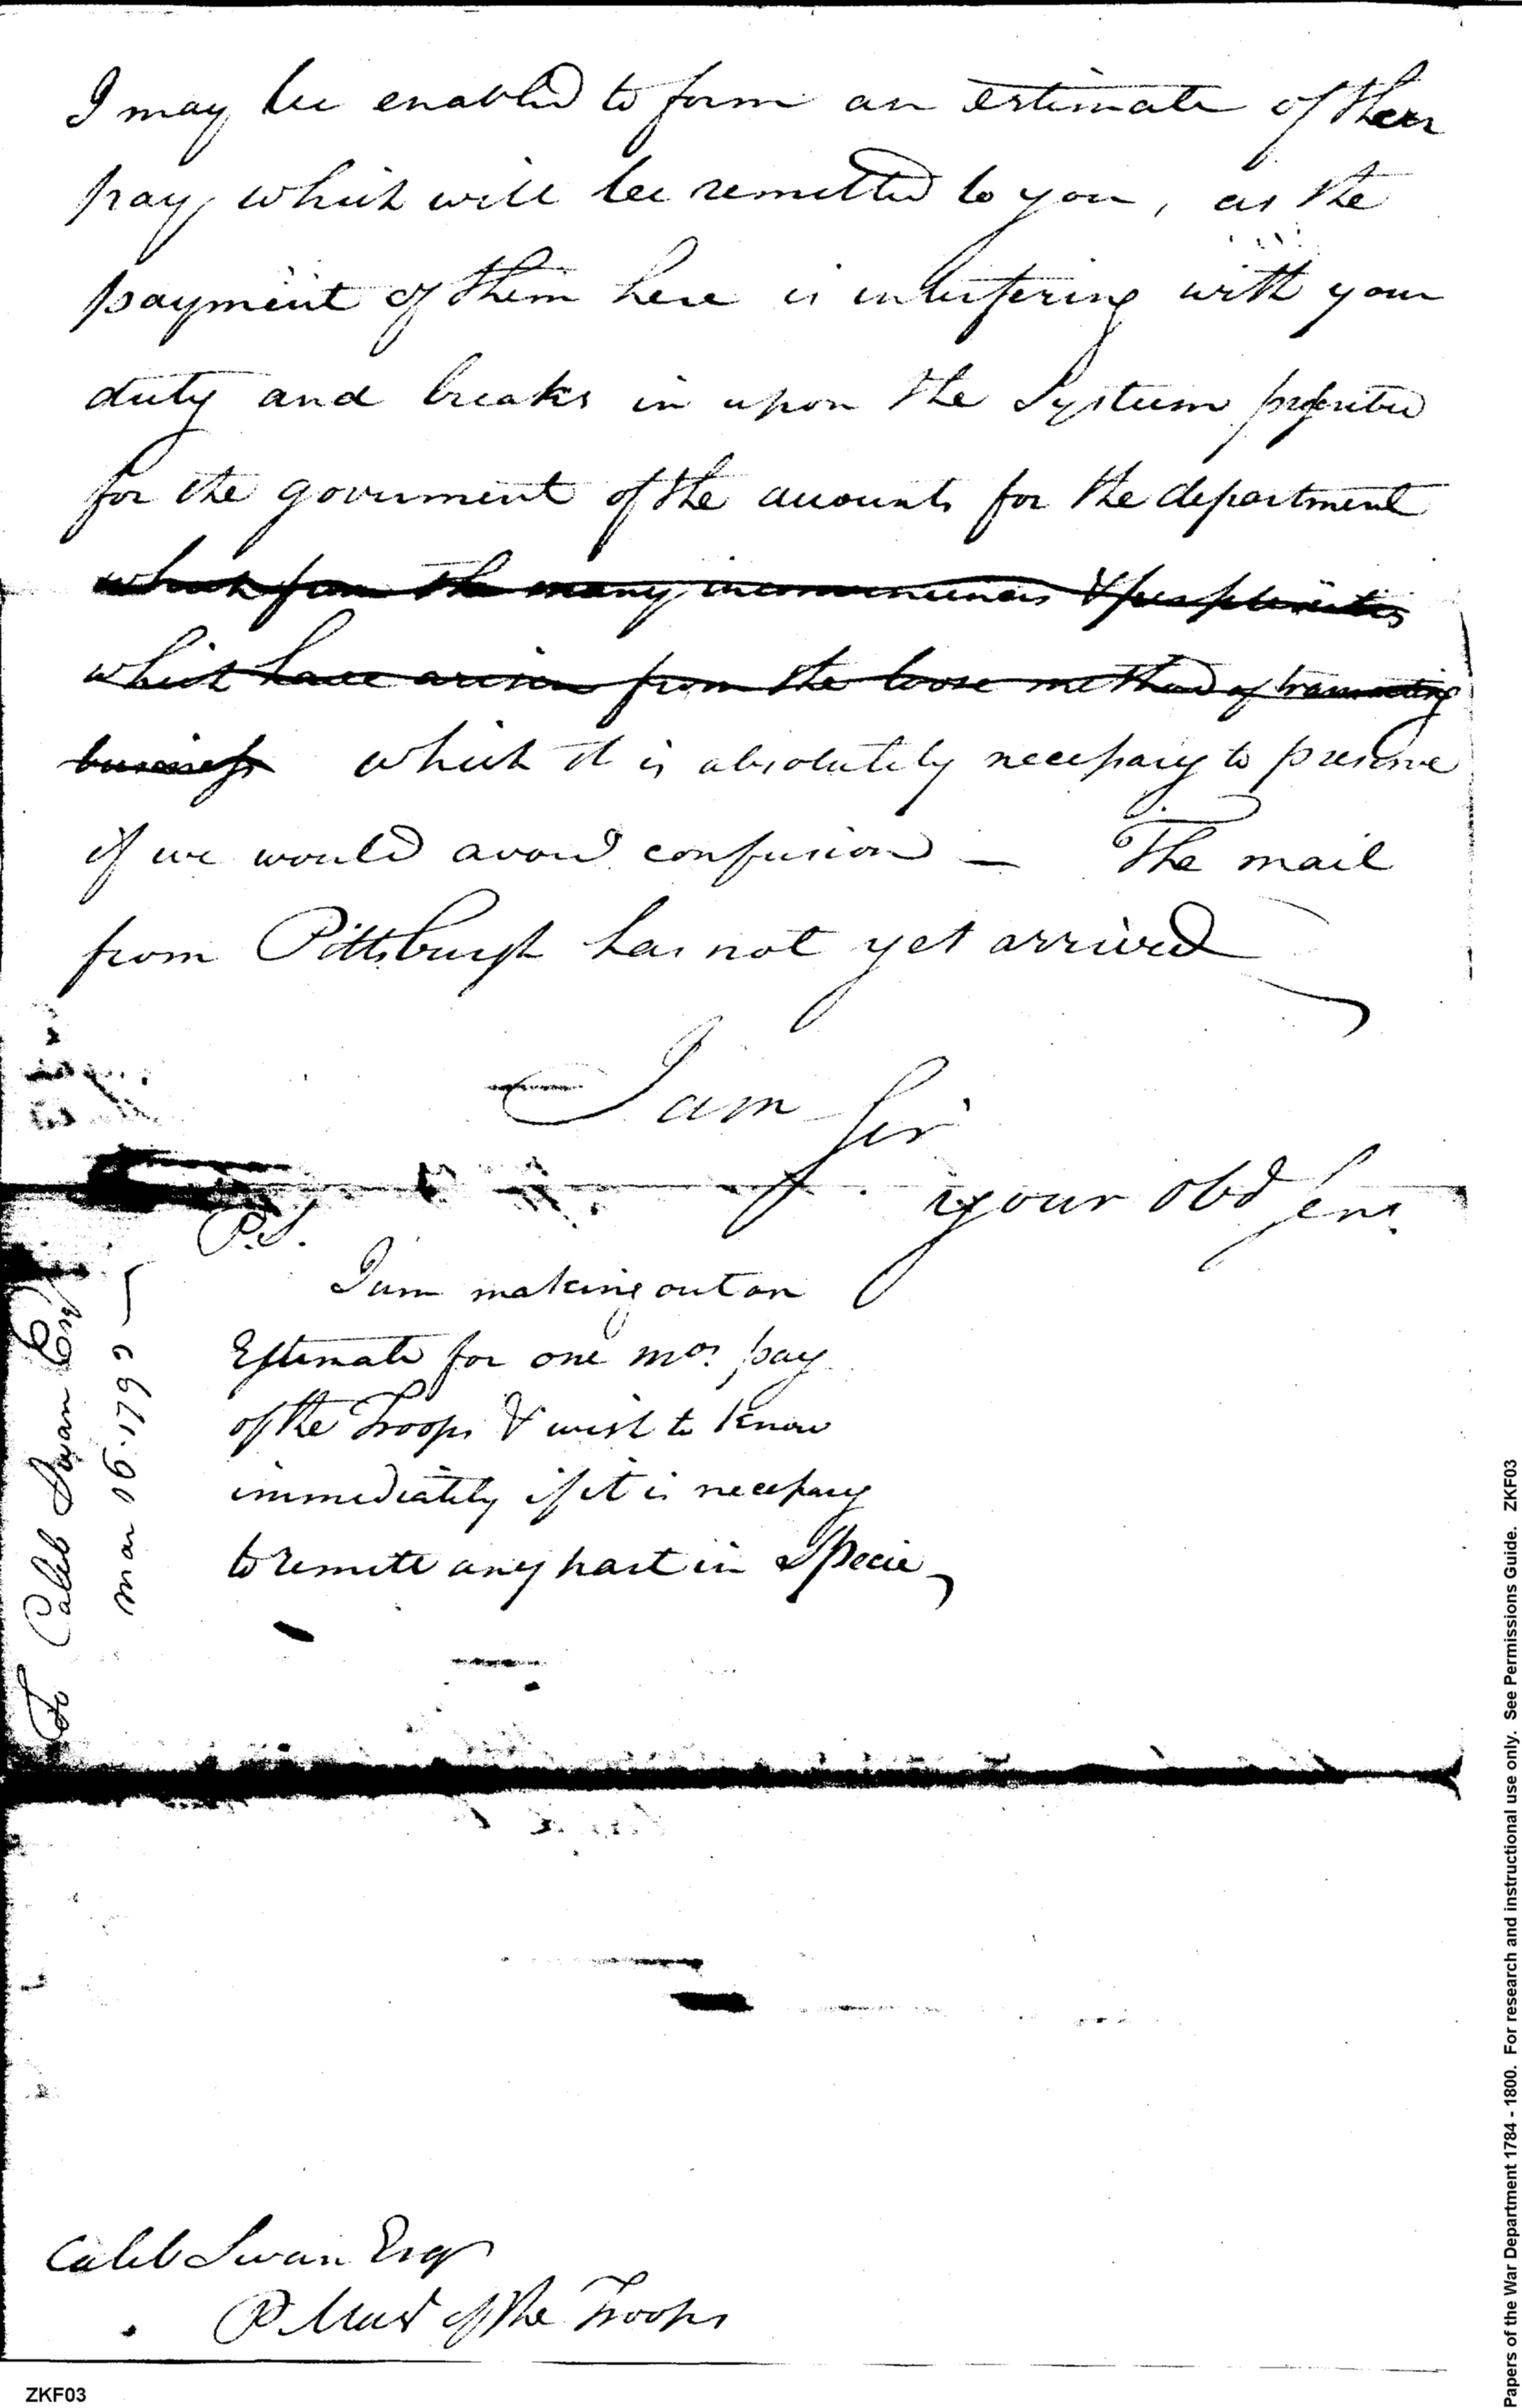 I may be enabled to form an estimate of their
pay which will be remitted to you, as the
payment of them here is interfering with your
duty and breaks in upon the System prescribed
for the goverment of the accounts for the department
which from the many inconveniencies & perplexities
which have arisen from the loose method of transacting
business which it is absolutely necessary to preserve
if we would avoid confusion — The mail
from Pittsburgh has not yet arrived
I am Sir
your obd Serv.
P.S.
I am making out an
Estimate for one mos. pay
of the Troops & wish to know
immediately if it is necessary
to remitt any part in Specie
To Caleb Swan Esqr
Mar 16. 1793
Caleb Swan Esqr
P Mast of the Troops
ZKF03
Papers of the War Department 1784 - 1800. For research and instructional use only. See Permissions Guide. ZKF03